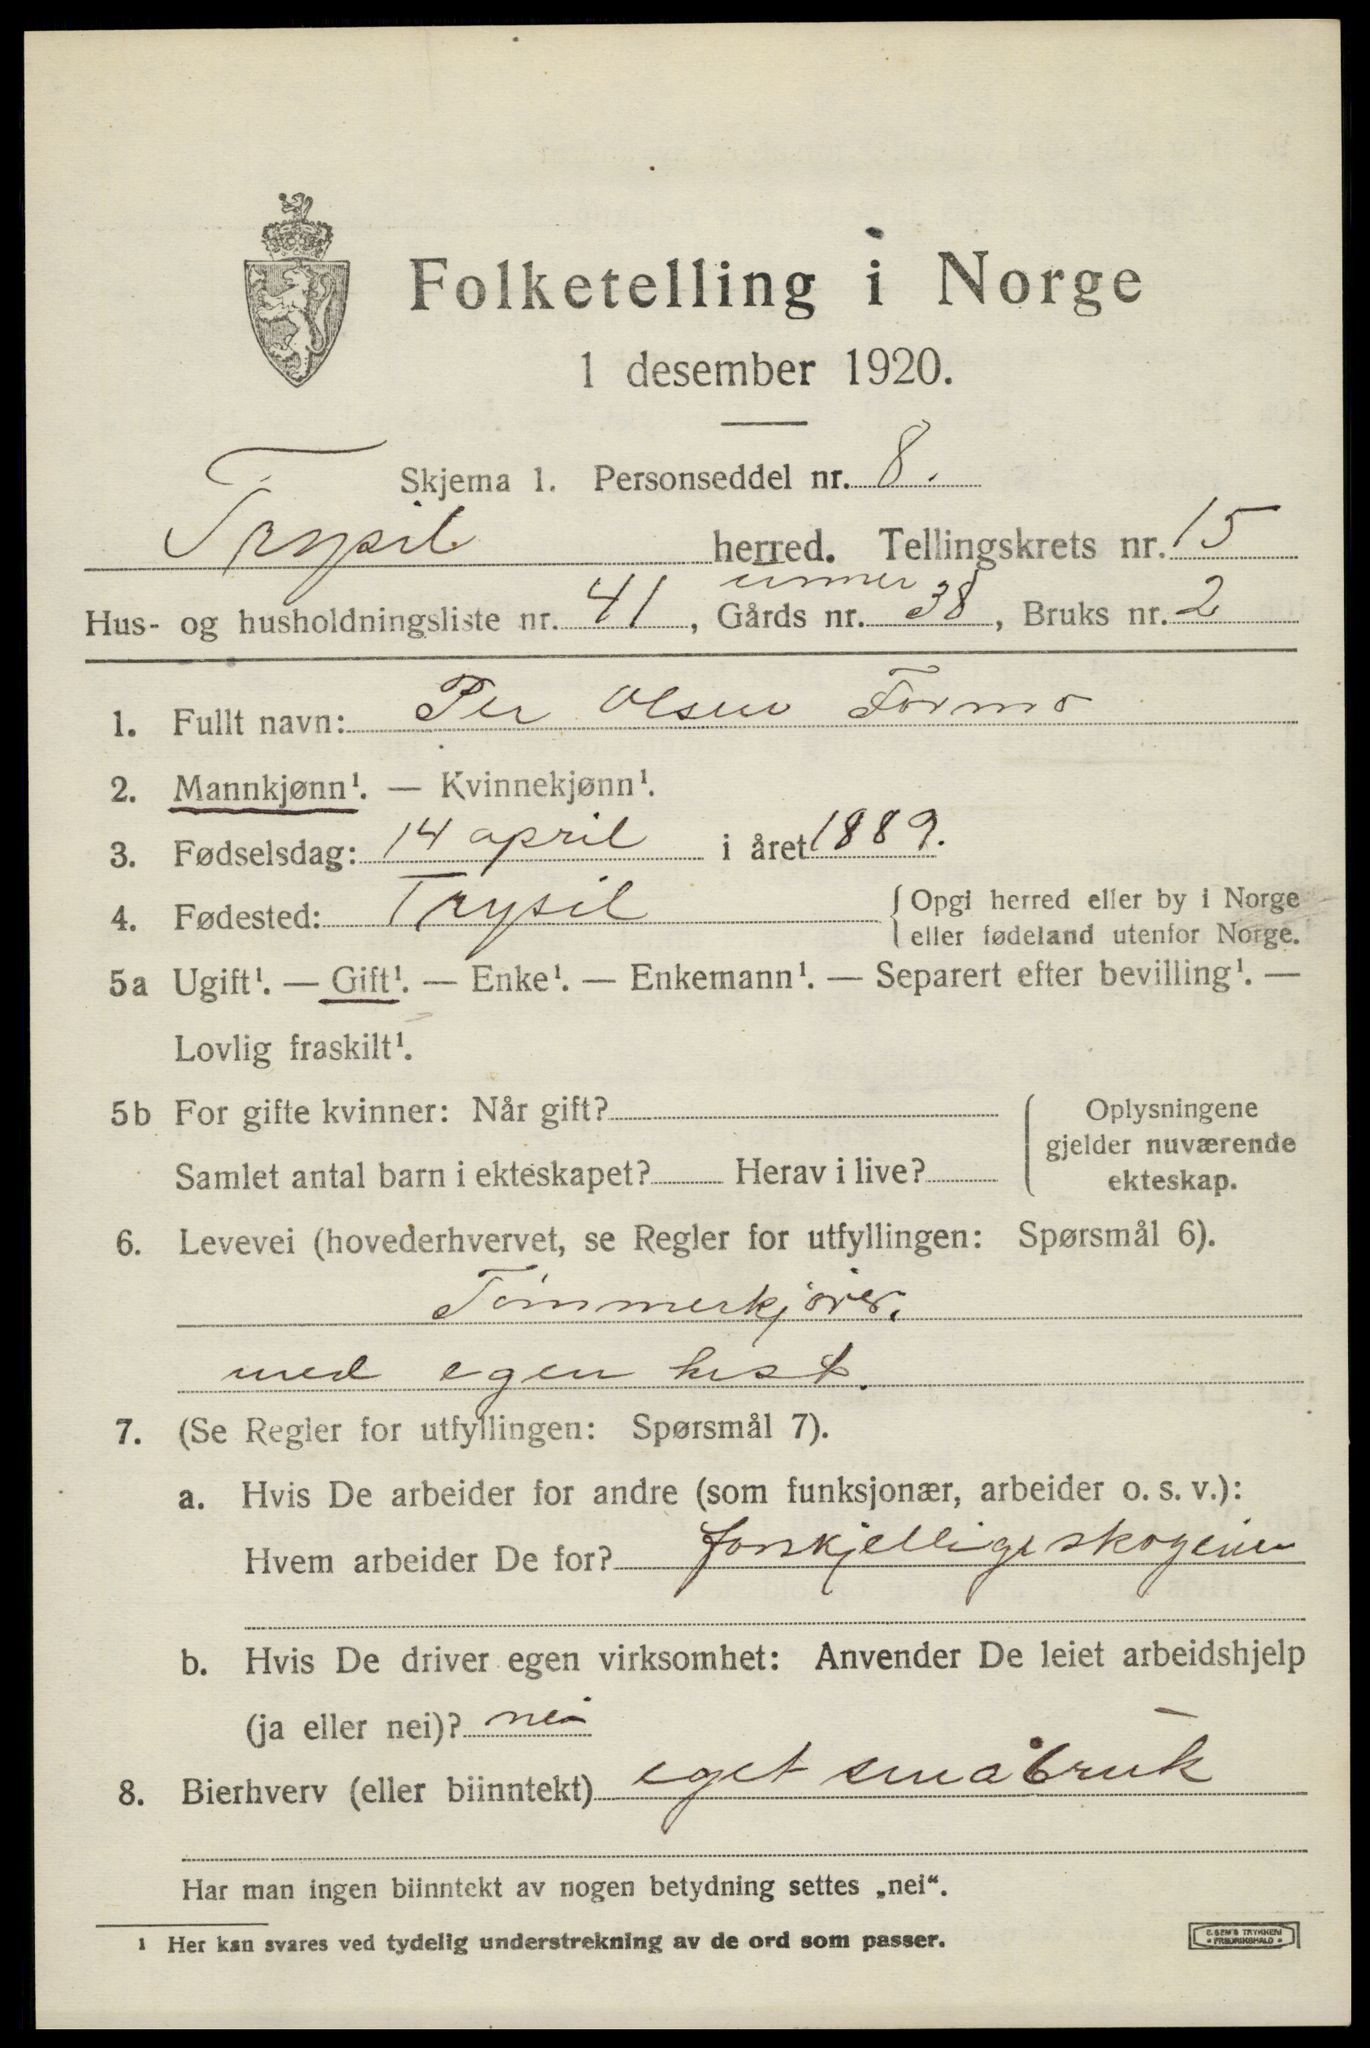 Folketelling i Norge
1 desember 1920.
Skjema 1. Personseddel nr. 8.
Trysil herred. Tellingskrets nr. 15
Hus- og husholdningsliste nr. 41, Gårds nr. 38, Bruks nr. 2
1. Fullt navn: Per Olsen Formo
2. Mannkjønn¹. — Kvinnekjønn¹.
3. Fødselsdag: 14 april i året 1889.
4. Fødested: Trysil { Opgi herred eller by i Norge
eller fødeland utenfor Norge.
5a Ugift¹. — Gift¹. — Enke¹. — Enkemann¹. — Separert efter bevilling¹. —
Lovlig fraskilt¹.
5b For gifte kvinner: Når gift?
Samlet antal barn i ekteskapet? Herav i live?
Oplysningene
gjelder nuværende
ekteskap.
6. Levevei (hovederhvervet, se Regler for utfyllingen: Spørsmål 6).
Tømmerkjører.
med egen hest.
7. (Se Regler for utfyllingen: Spørsmål 7).
a. Hvis De arbeider for andre (som funksjonær, arbeider o. s. v.):
Hvem arbeider De for? forskjellige
b. Hvis De driver egen virksomhet: Anvender De leiet arbeidshjelp
(ja eller nei)? nei
8. Bierhverv (eller biinntekt) eget småbruk
Har man ingen biinntekt av nogen betydning settes „nei“.
¹ Her kan svares ved tydelig understrekning av de ord som passer.
E. SEM'S TRYKKERI
* FREDRIKSHALD *